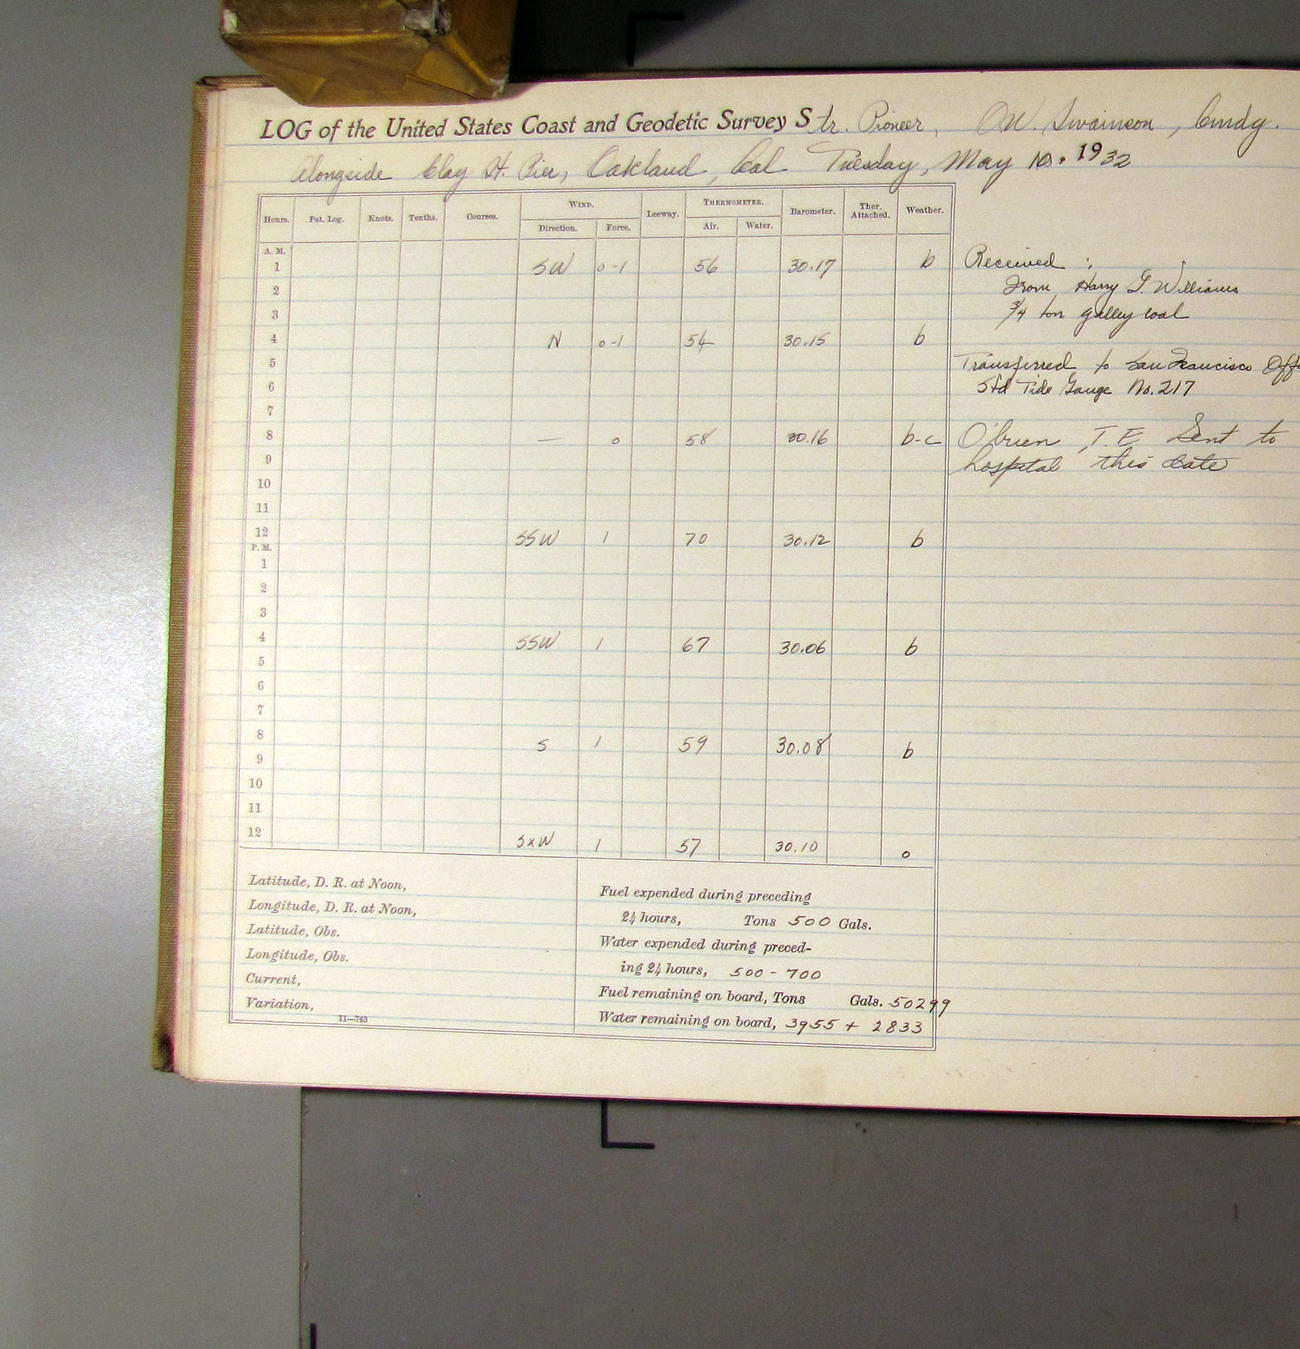 LOG of the United States Coast and Geodetic Survey Str. Pioneer, O.W. Swainson, Cmdg.
Alongside Clay St. Pier, Oakland, Cal Tuesday, May 10, 1932
Hours. Pat. Log. Knots. Tenths. Courses. WIND. Leeway. THERMOMETER. Barometer. Ther. Attached. Weather.
Direction. Force. Air. Water.
A. M.
1 SW 0-1 56 30.17 b
2
3
4 N 0-1 54 30.15 b
5
6
7
8 — 0 58 30.16 b-c
9
10
11
12 SSW 1 70 30.12 b
P. M.
1
2
3
4 SSW 1 67 30.06 b
5
6
7
8 S 1 59 30.08 b
9
10
11
12 SxW 1 57 30.10 o
Received :
From Harry G. Williams
3/4 ton galley coal
Transferred to San Francisco Off
Std Tide Gauge No. 217
O'Brien, T.E. Sent to
hospital this date
Latitude, D. R. at Noon,
Longitude, D. R. at Noon,
Latitude, Obs.
Longitude, Obs.
Current,
Variation,
11—743
Fuel expended during preceding
24 hours, Tons 500 Gals.
Water expended during preced-
ing 24 hours, 500 - 700
Fuel remaining on board, Tons Gals. 50299
Water remaining on board, 3955 + 2833